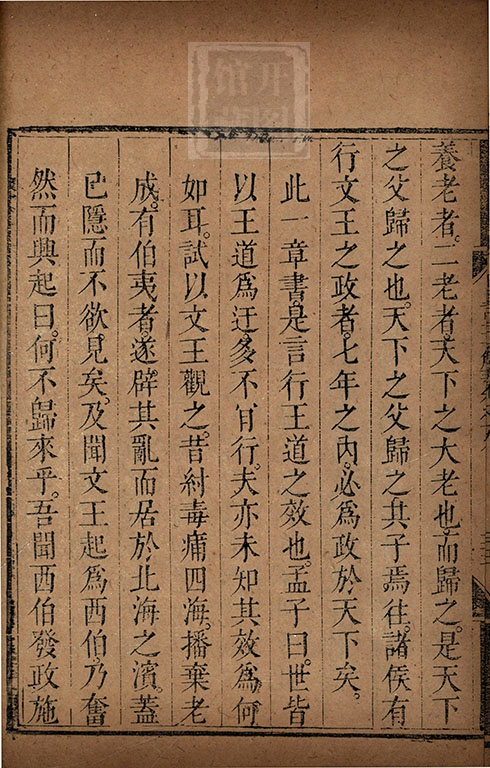 養老者。二老者。天下之大老也而歸之。是天下
之父歸之也。天下之父歸之其子焉往。諸侯有
行文王之政者。七年之內。必爲政於天下矣。
此一章書。是言行王道之效也。孟子曰。世皆
以王道爲迂。多不肯行。夫亦未知其效爲何
如耳。試以文王觀之。昔紂毒痡四海。播棄老
成。有伯夷者。遂辟其亂而居於北海之濱。蓋
已隱而不欲見矣。及聞文王起爲西伯。乃奮
然而興起曰。何不歸來乎。吾聞西伯發政施